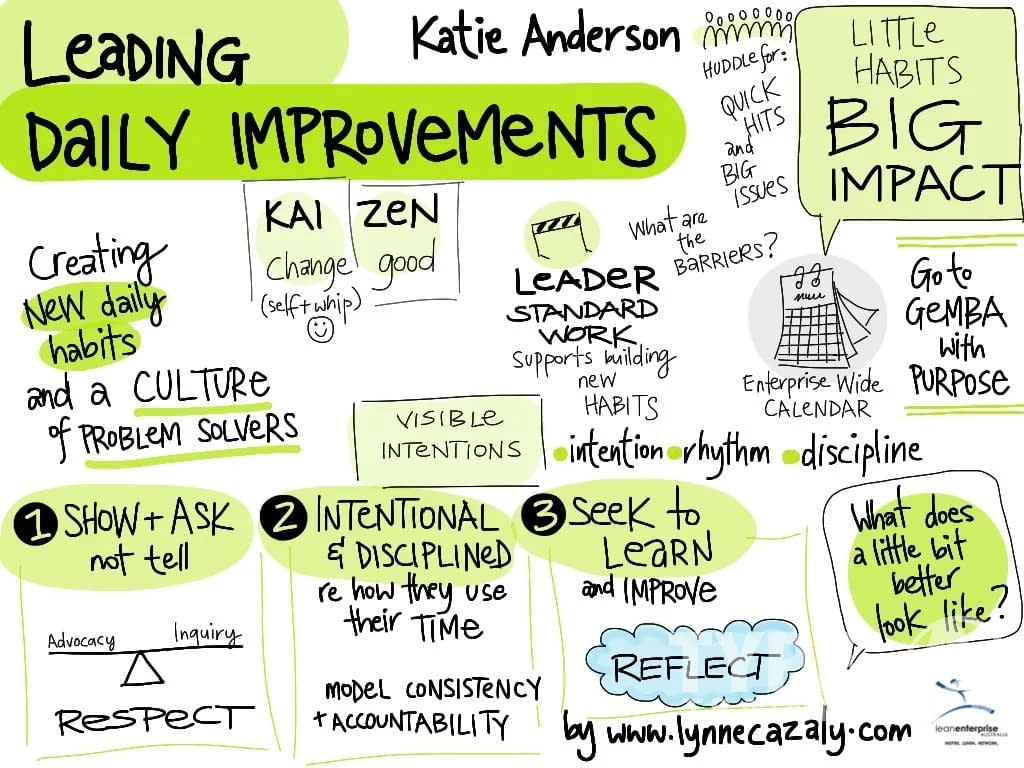 LEADING
DAILY IMPROVEMENTS
Katie Anderson
HUDDLE for:
QUICK
HITS
and
BIG
ISSUES
LITTLE
HABITS
BIG
IMPACT
KAI
Change
(self + whip)
ZEN
good
Creating
NEW daily
habits
and a CULTURE
of PROBLEM SOLVERS
LEADER
STANDARD
WORK
Supports building
new
HABITS
What are
the
BARRIERS?
Enterprise Wide
CALENDAR
Go to
GEMBA
with
PURPOSE
VISIBLE
INTENTIONS
•intention •rhythm •discipline
1 SHOW + ASK
not tell
Advocacy Inquiry
RESPECT
2 INTENTIONAL
& DISCIPLINED
re how they use
their TIME
MODEL CONSISTENCY
+ ACCOUNTABILITY
3 SEEK to
LEARN
and IMPROVE
REFLECT
What does
a little bit
better
look like?
by www.lynnecazaly.com
leanenterprise
AUSTRALIA
INSPIRE. LEARN. NETWORK.